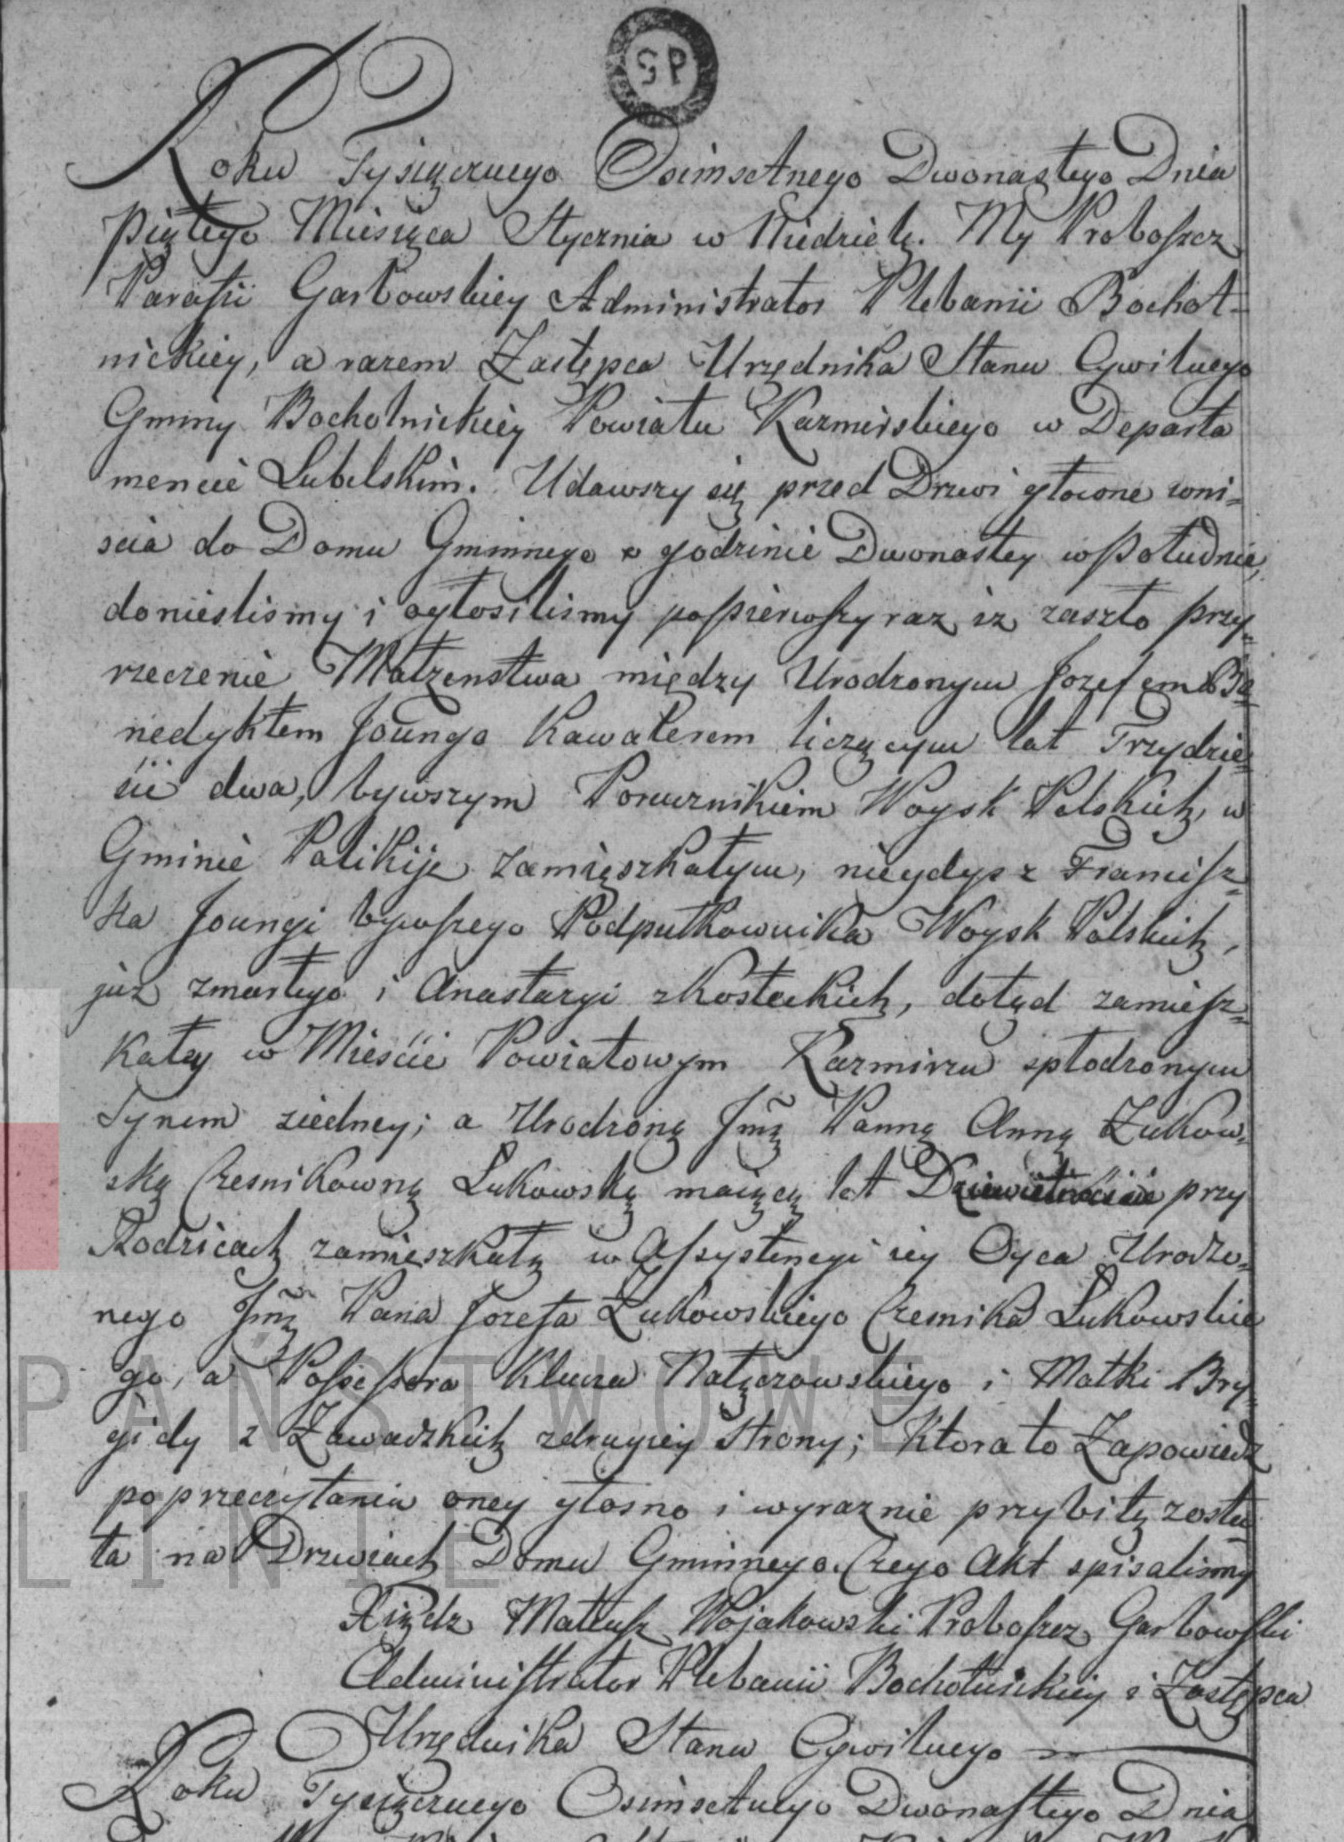 SP
Roku Tysiącznego Osimsetnego Dwonastego Dnia
Piątego Miesiąca Stycznia w Niedzielę. My Proboszcz
Parafii Garbowskiey Administrator Plebanii Bochot=
nickiey, a razem Zastępca Urzędnika Stanu Cywilnego
Gminy Bochotnickiey Powiatu Kazmirskiego w Departa
mencie Lubelskim. Udawszy się przed Drzwi głowne wni=
scia do Domu Gminnego o godzinie Dwonastey w Południe,
doniesliśmy i ogłosiliśmy popierwszy raz iz zaszło przy=
rzeczenie Małzenstwa między Urodzonym Jozefem Be
nedyktem Joungo Kawalerem liczącym lat Trzydzie=
ści dwa, bywszym Porucznikiem Woysk Polskich, w
Gminie Palikije zamięszkałym, niegdys z Francisz=
ka Joungi bywszego Podpułkownika Woysk Polskich,
juz zmarłego i Anastazyi z Kosteckich, dotąd zamiesz=
kałey w Mieście Powiatowym Kazmirzu spłodzonym
Synem ziedney; a Urodzoną Jmę Panną Anną Zukow=
ską Czesnikowną Łukowską maiącą lat przy
Rodzicach zamięszkałą w Assystencyi iey Oyca Urodzo=
nego Jmę Pana Jozefa Zukowskiego Czesnika Łukowskie
go, a Possessora Klucza Nałęczowskiego i Matki Bry=
gidy z Zawadzkich zdrugiey Strony; Ktora to Zapowiedz
po przeczytaniu oney głosno i wyraznie przybitą zosta
ła na Drzwiach Domu Gminnego. Czego Akt spisaliśmy
Xiądz Mateusz Wojakowski Proboszcz Garbowski
Administrator Plebanii Bochotnickiey i Zastępca
Urzędnika Stanu Cywilnego
Roku Tysiącznego Osimsetnego Dwonastego Dnia
PAŃSTWOWE
LINIE